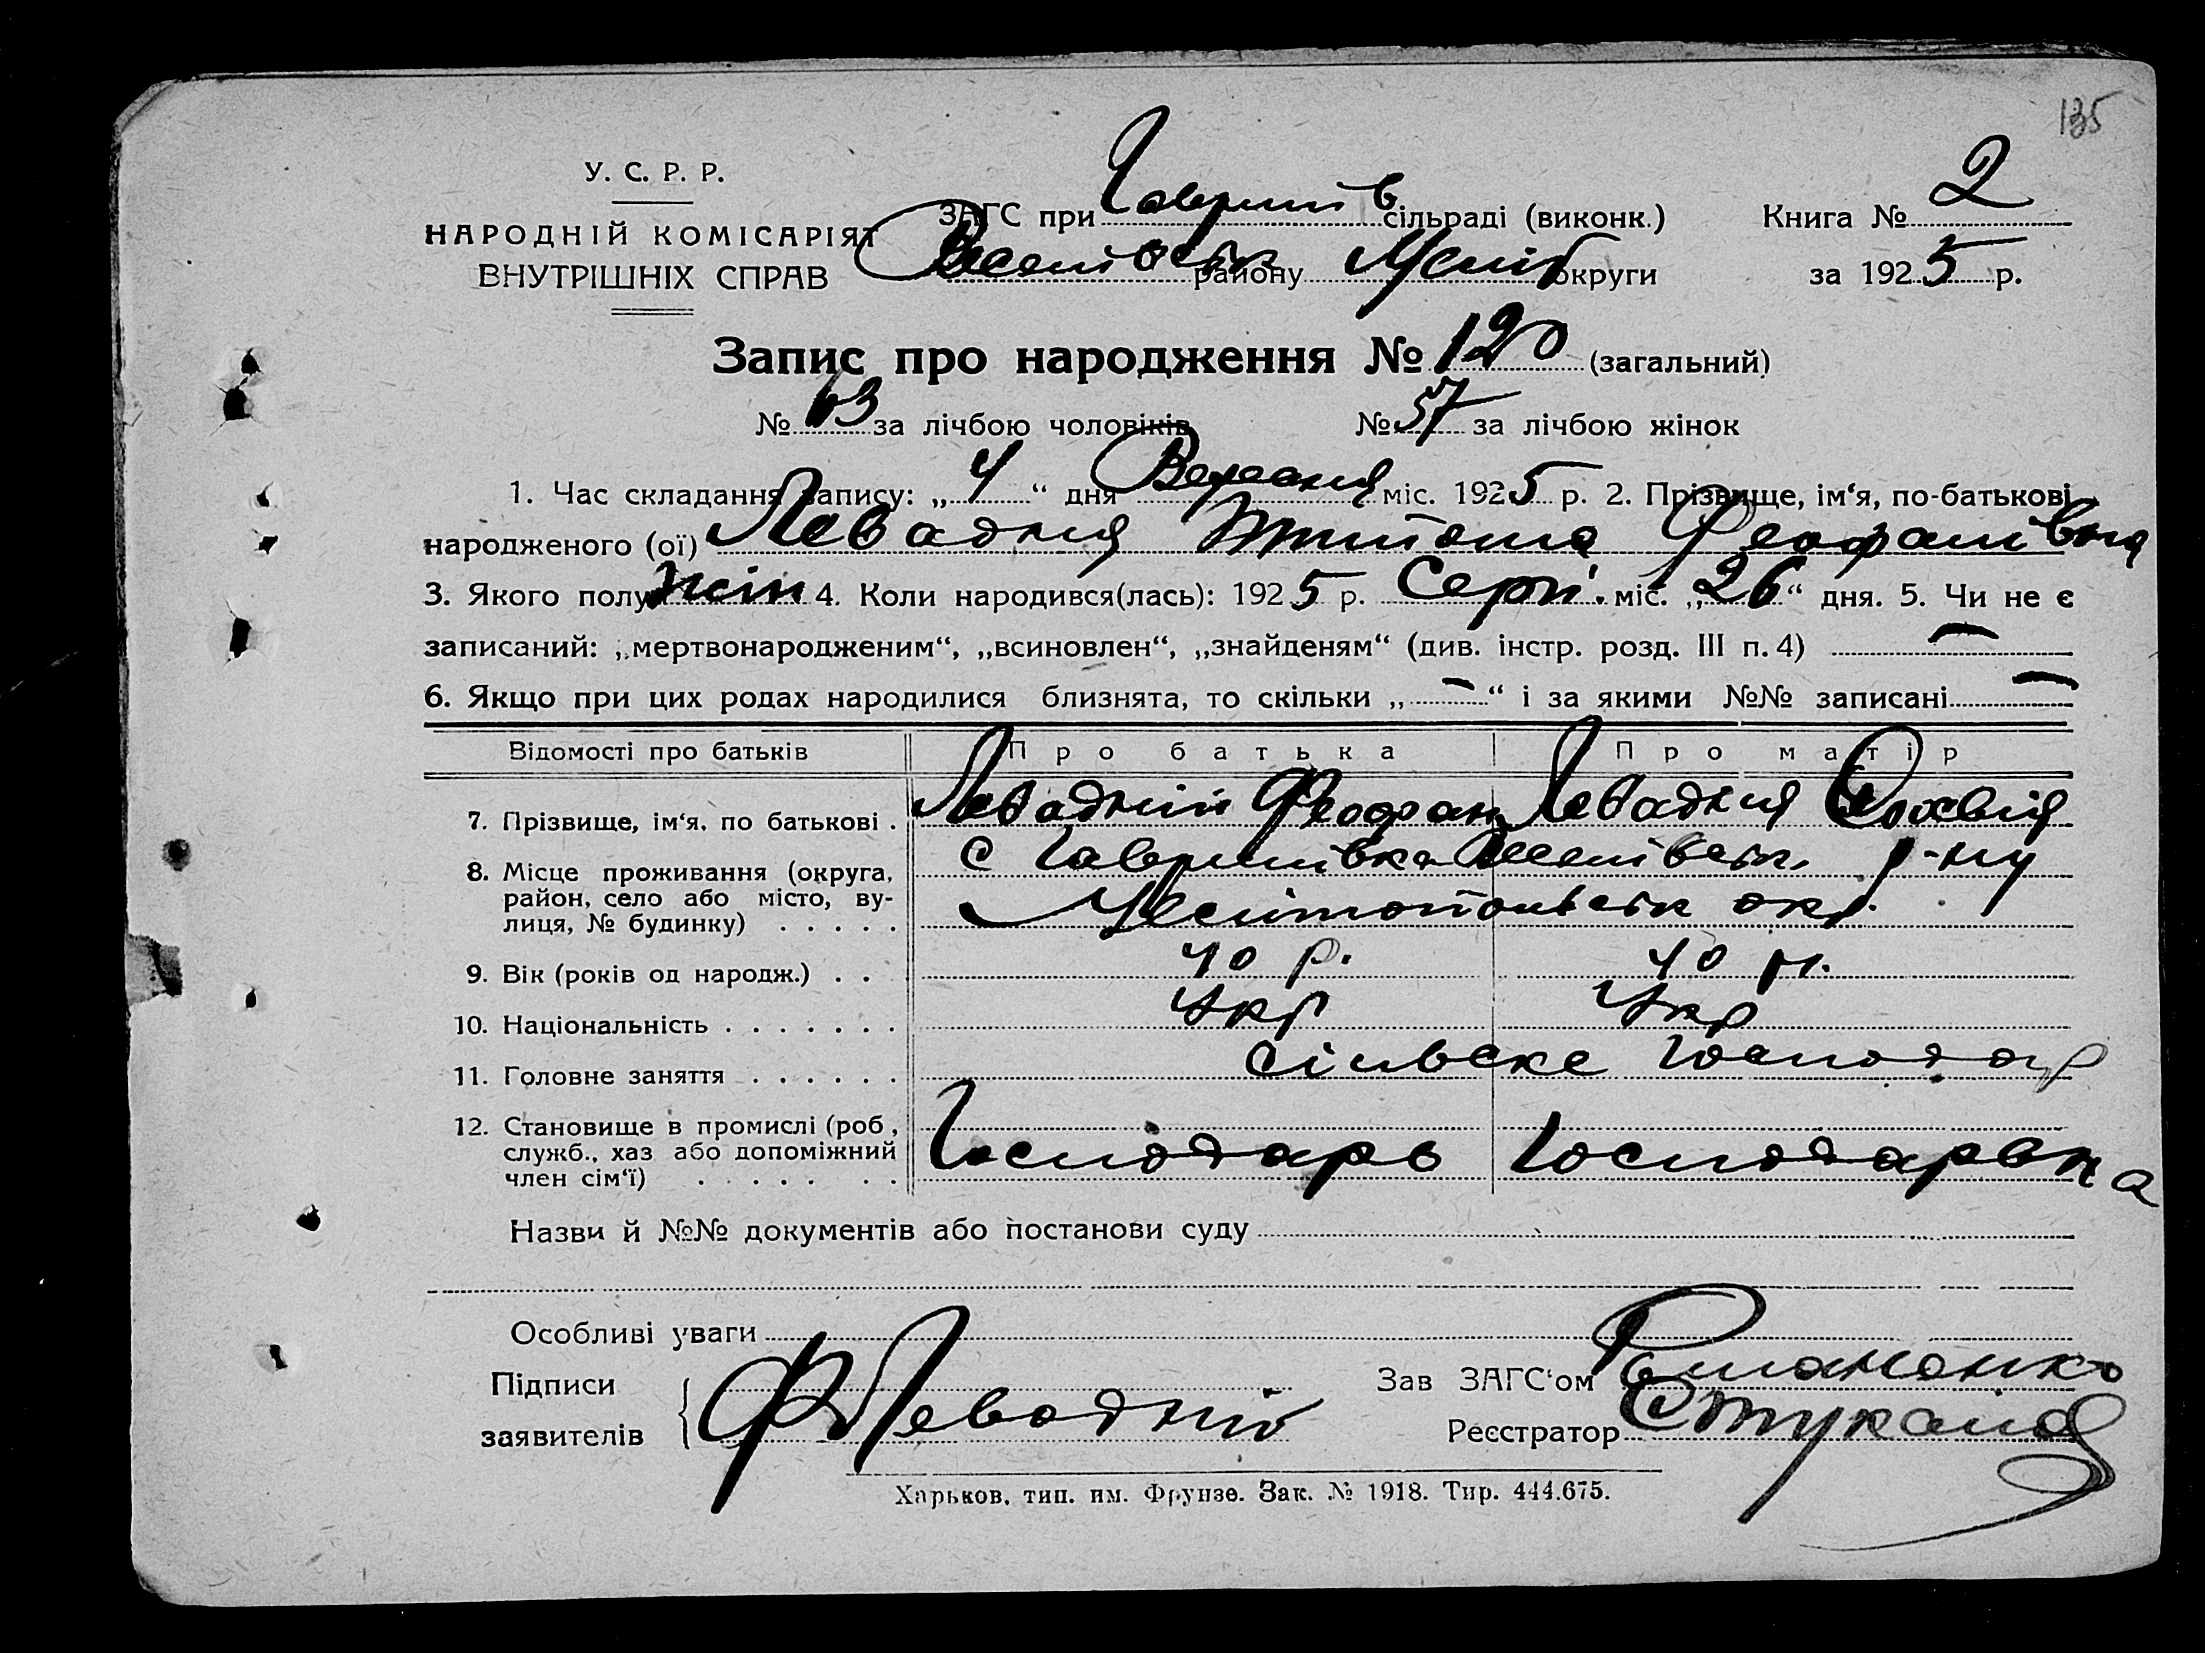 135
У. С. Р. Р.
НАРОДНІЙ КОМІСАРІЯТ
ВНУТРІШНІХ СПРАВ
ЗАГС при Гаврилів сільраді (виконк.)
Веселівськ району Меліт округи
Книга № 2
за 1925 р.
Запис про народження № 120 (загальний)
№ 63 за лічбою чоловіків № 57 за лічбою жінок
1. Час складання запису: „4“ дня Вересня міс. 1925 р. 2. Прізвище, ім‘я, по-батькові
народженого (ої) Левадня Феофанівна
3. Якого полу жін 4. Коли народився(лась): 1925 р. Серп. міс. „26“ дня. 5. Чи не є
записаний: „мертвонародженим“, „всиновлен“, „знайденям“ (див. інстр. розд. III п. 4) —
6. Якщо при цих родах народилися близнята, то скільки „—“ і за якими №№ записані —
Відомості про батьків Про батька Про матір
7. Прізвище, ім‘я, по батькові . Левадній Феофан Левадня
8. Місце проживання (округа, район, село або місто, ву-
лиця, № будинку) . . . . . с Гаврилівка Веселівськ. р-ну
Мелітопольськ окр.
9. Вік (років од народж.) . . 40 р. 40 р.
10. Національність . . . . . . . Укр Укр
11. Головне заняття . . . . . . сільске господар
12. Становище в промислі (роб., служб., хаз або допоміжний
член сім‘ї) . . . . . . . Господарь Господарька
Назви й №№ документів або постанови суду
Особливі уваги
Підписи
заявителів Ф Левадній
Зав ЗАГС‘ом
Реєстратор
Харьков, тип. им. Фрунзе. Зак. № 1918. Тир. 444.675.